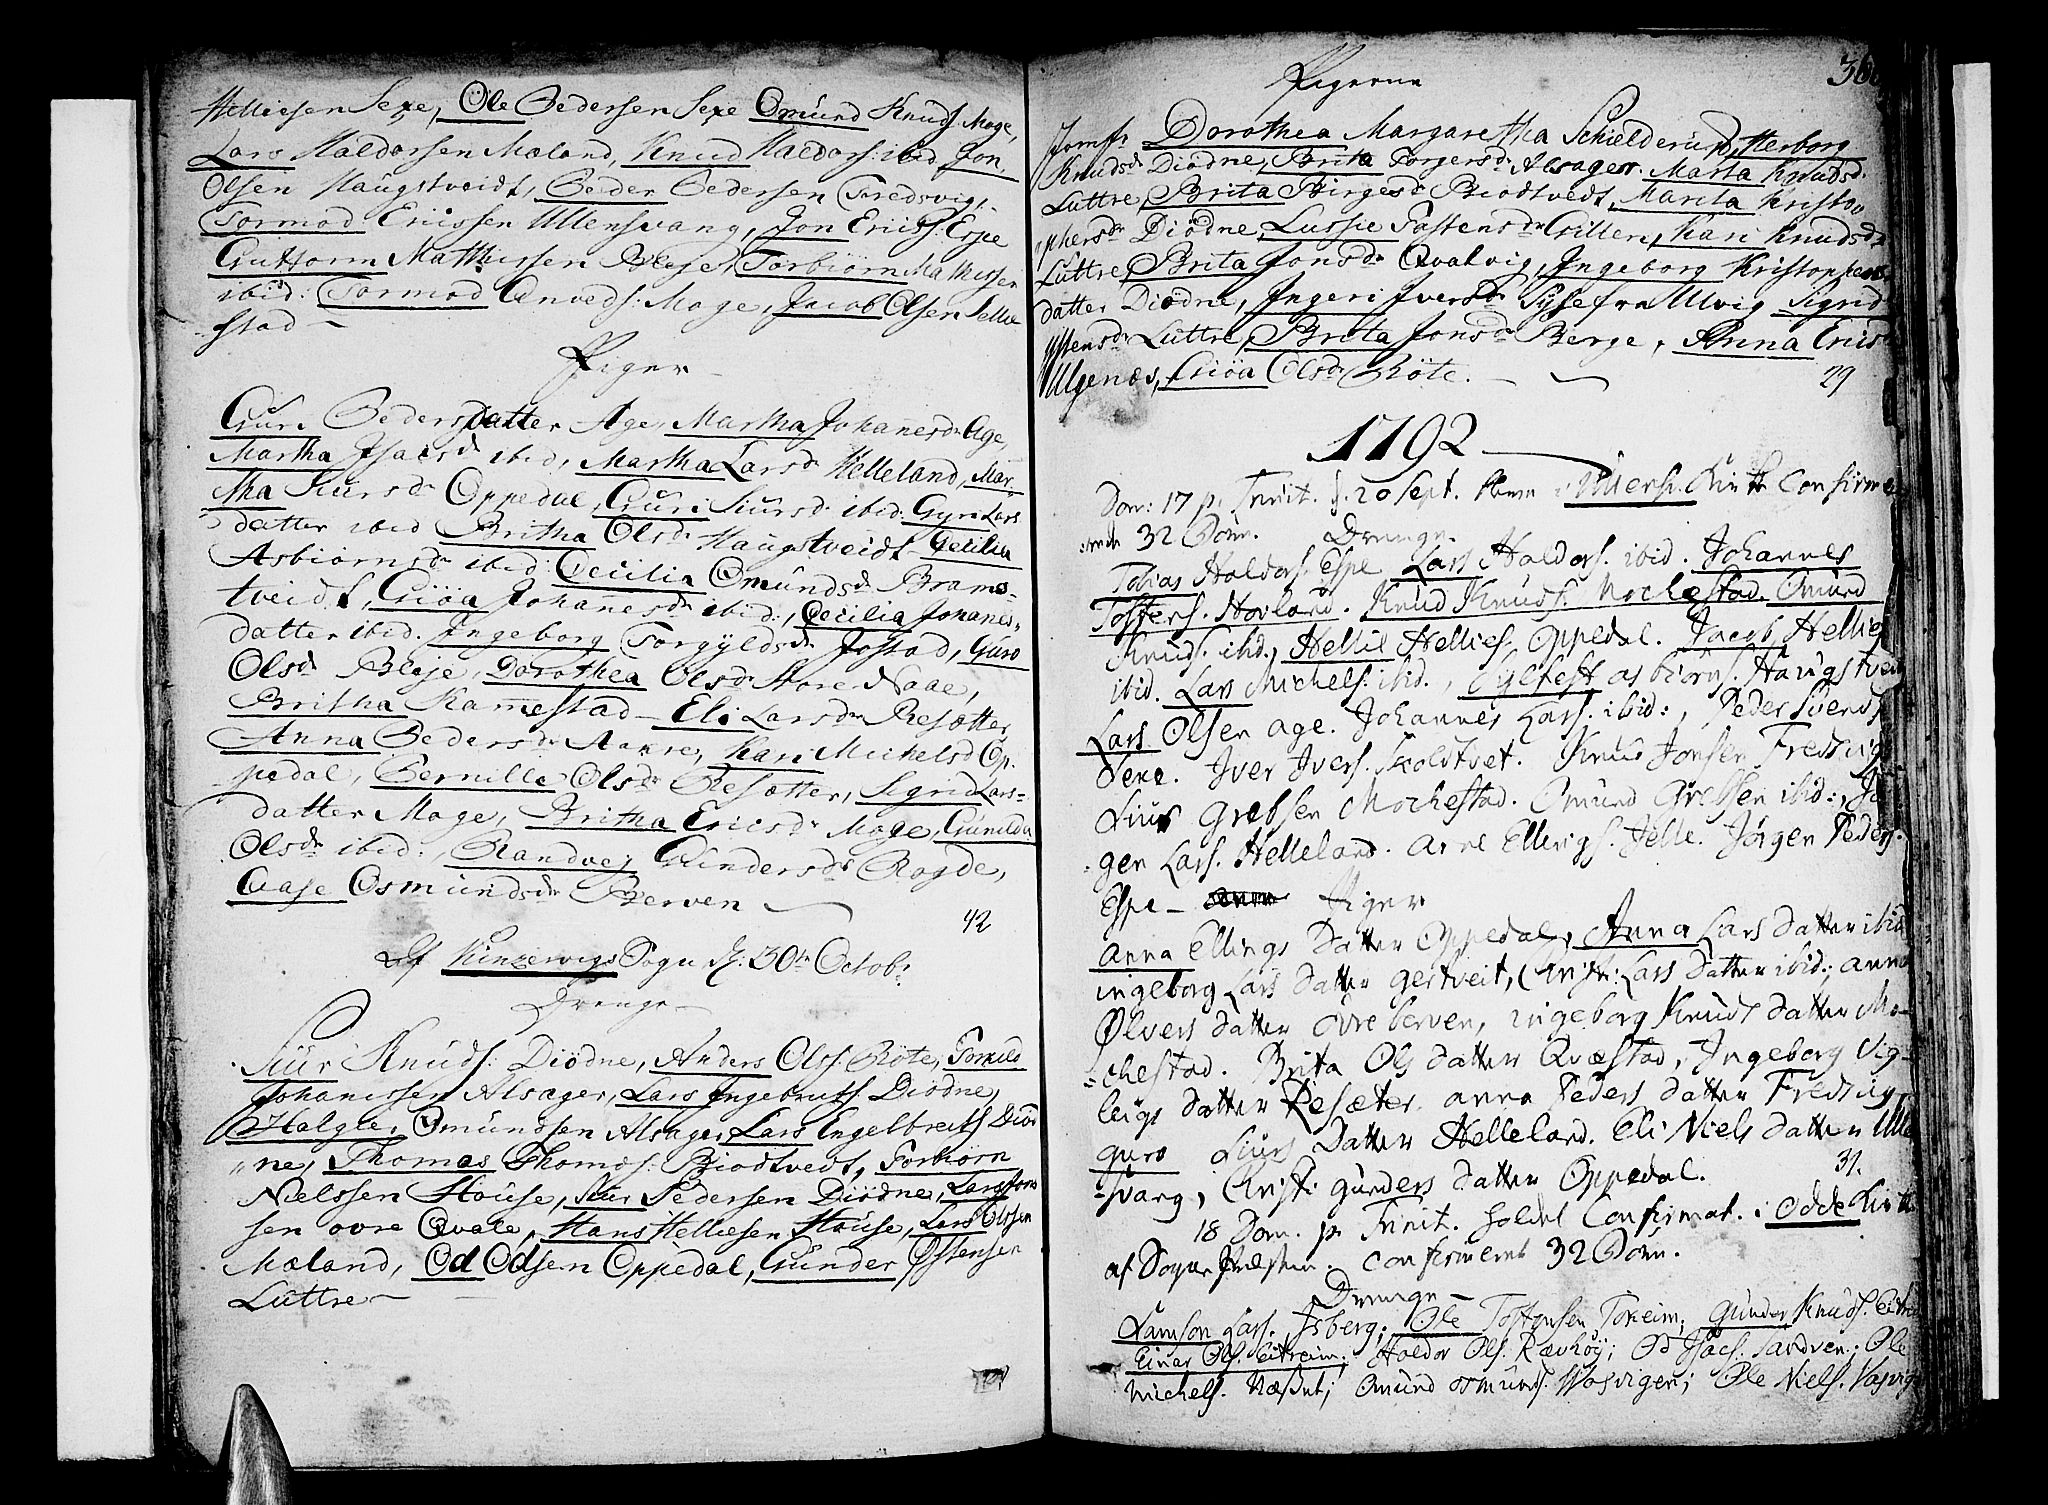 Helliesen Sexe, Ole Pedersen Sexe Omund Knuds: Mage,
Lars Haldorsen Mæland, Knud Haldors: ibid. Jon
Olsen Haugstveidt, Peder Pedersen Fredsvig,
Tormod Ericssen Ullensvang, Jon Ericss: Espe
Guttorm Mathissen Bleje, Torbiörn Mathissen
ibid: Tormod Anveds: Mage, Jacob Olsen Jelle
stad
Piger
Guri Pedersdatter Age, Martha Johanesdr Age,
Martha Isacsdr ibid, Martha Larsdr Helleland, Mar-
tha Siursdr Oppedal, Guri Siursdr ibid: Gyri Lars
datter ibid Britha Olsdr Haugstveidt Cecilia
Asbiörnsdr ibid Cecilia Omundsdr Brams-
tveidt, Giöa Johanesdr ibid:, Cecilia Johanes-
datter ibid. Ingeborg Torgyldsdr Jostad, Guro
Olsdr Bleje, Dorothea Olsdr Store Naae,
Britha Kamestad Eli Larsdr Resætter
Anna Pedersdr Aarre, Kari Michelsd Op-
pedal, Pernille Olsdr Resætter, Sigrid Lars-
datter Mage, Britha Ericsdr Mage, Gunilda
Olsdr ibid:, Randvej Gundersdr Rogde,
Aase Osmundsdr Berven
42
Af Kinzervigs Sogn d: 30te Octobr
Drenge
Siur Knuds: Diödne, Anders Olss: Röte, Torkild
Johanessen Alsager, Lars Ingebrets. Diödne,
Halgler Omundsen Alsager, Lars Engelbreits Diöd
ne, Thomas Thomas: Biodtvedt, Torbiörn
Nielssen House, Siur Pedersen Diödne, Lars Jon
sen ovre Qvale, Hans Helliesen House, Lars Olssen
Mæland, Od Odsen Oppedal, Gunder Östensen
Luttre
Pigerne
36
Jomfr Dorothea Margaretha Schielderup, Herborg
Knudsdr Diödne, Brita Torgersdr Alsager. Marta Knudsd.
Luttre, Brita Birgesdr Biodtvedt, Marita Kristo
phersdr Diödne, Lussie Tostensdr Gillen, Kari Knudsdr
Luttre, Brita Jonsdr Qvalvig, Ingeborg Kristophers
datter Diödne, Ingeri Iversdr Syse fra Ulvig Sigrid
Östensdr Luttre, Brita Jonsdr Berge, Anna Ericsd
Ulgenæs, Giöa Olsdr Röte.
29
1792
Dom: 17 p. Trinit. d. 20 Sept. i Ullensv. Kirke Confirme
rede 32 Börn. Drenge.
Tobias Haldors. Espe Lars Haldors. ibid. Johannes
Tosters. Hovland. Knud Knuds. Mochestad. Omund
Knuds. ibid., Hellie Hellies. Oppedal. Jacob Hellies
ibid. Lars Michels. ibid., Sylfest Asbiörns. Haugstveit
Lars Olsen age. Johannes Lars. ibid:, Peder Svends
Sexe. Iver Ivers. Skoldtvet. Knud Jonsen Fredsvig
Siur Grebsen Mochestad. Omund Grebsen ibid:, Jör
gen Lars. Helleland. Arne Ellings. Jelle. Jörgen Peders.
Espe Piger
Anna Ellings Datter Oppedal, Anna Lars datter ibid
ingeborg Lars datter gertveit, Christi: Lars Datter ibid:; anna
Ølvers datter övre berven, ingeborg Knuds datter Mo-
chestad. Brita Ols datter Qvæstad, Ingeborg Vig-
leigs datter Resæter. anna Peders datter Fredsvig
guro Siurs Datter Helleland. Eli Niels datter Ulle
svang, Christi gunders datter Oppedal.
31.
18 Dom. p. Trinit. holdet Confirmat. i Odde Kirke
af Sogne Præsten. confirmeret 32 Börn.
Drenge
Samson Lars. Isberg; Ole Tostensen Tokeim; gunder Knuds. Eitrem
Einar Ols. Eitreim; Haldor Ols. Rævhöy; Od Isacs. Sandven; Ole
Michels. Næsflat; Omund Osmunds. Vasvigen; Ole Niels. Vasvig